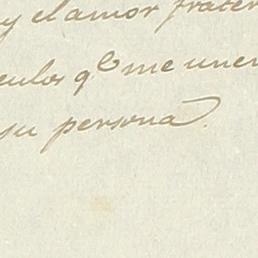 y el amor frater
culos qe me unen
su persona.